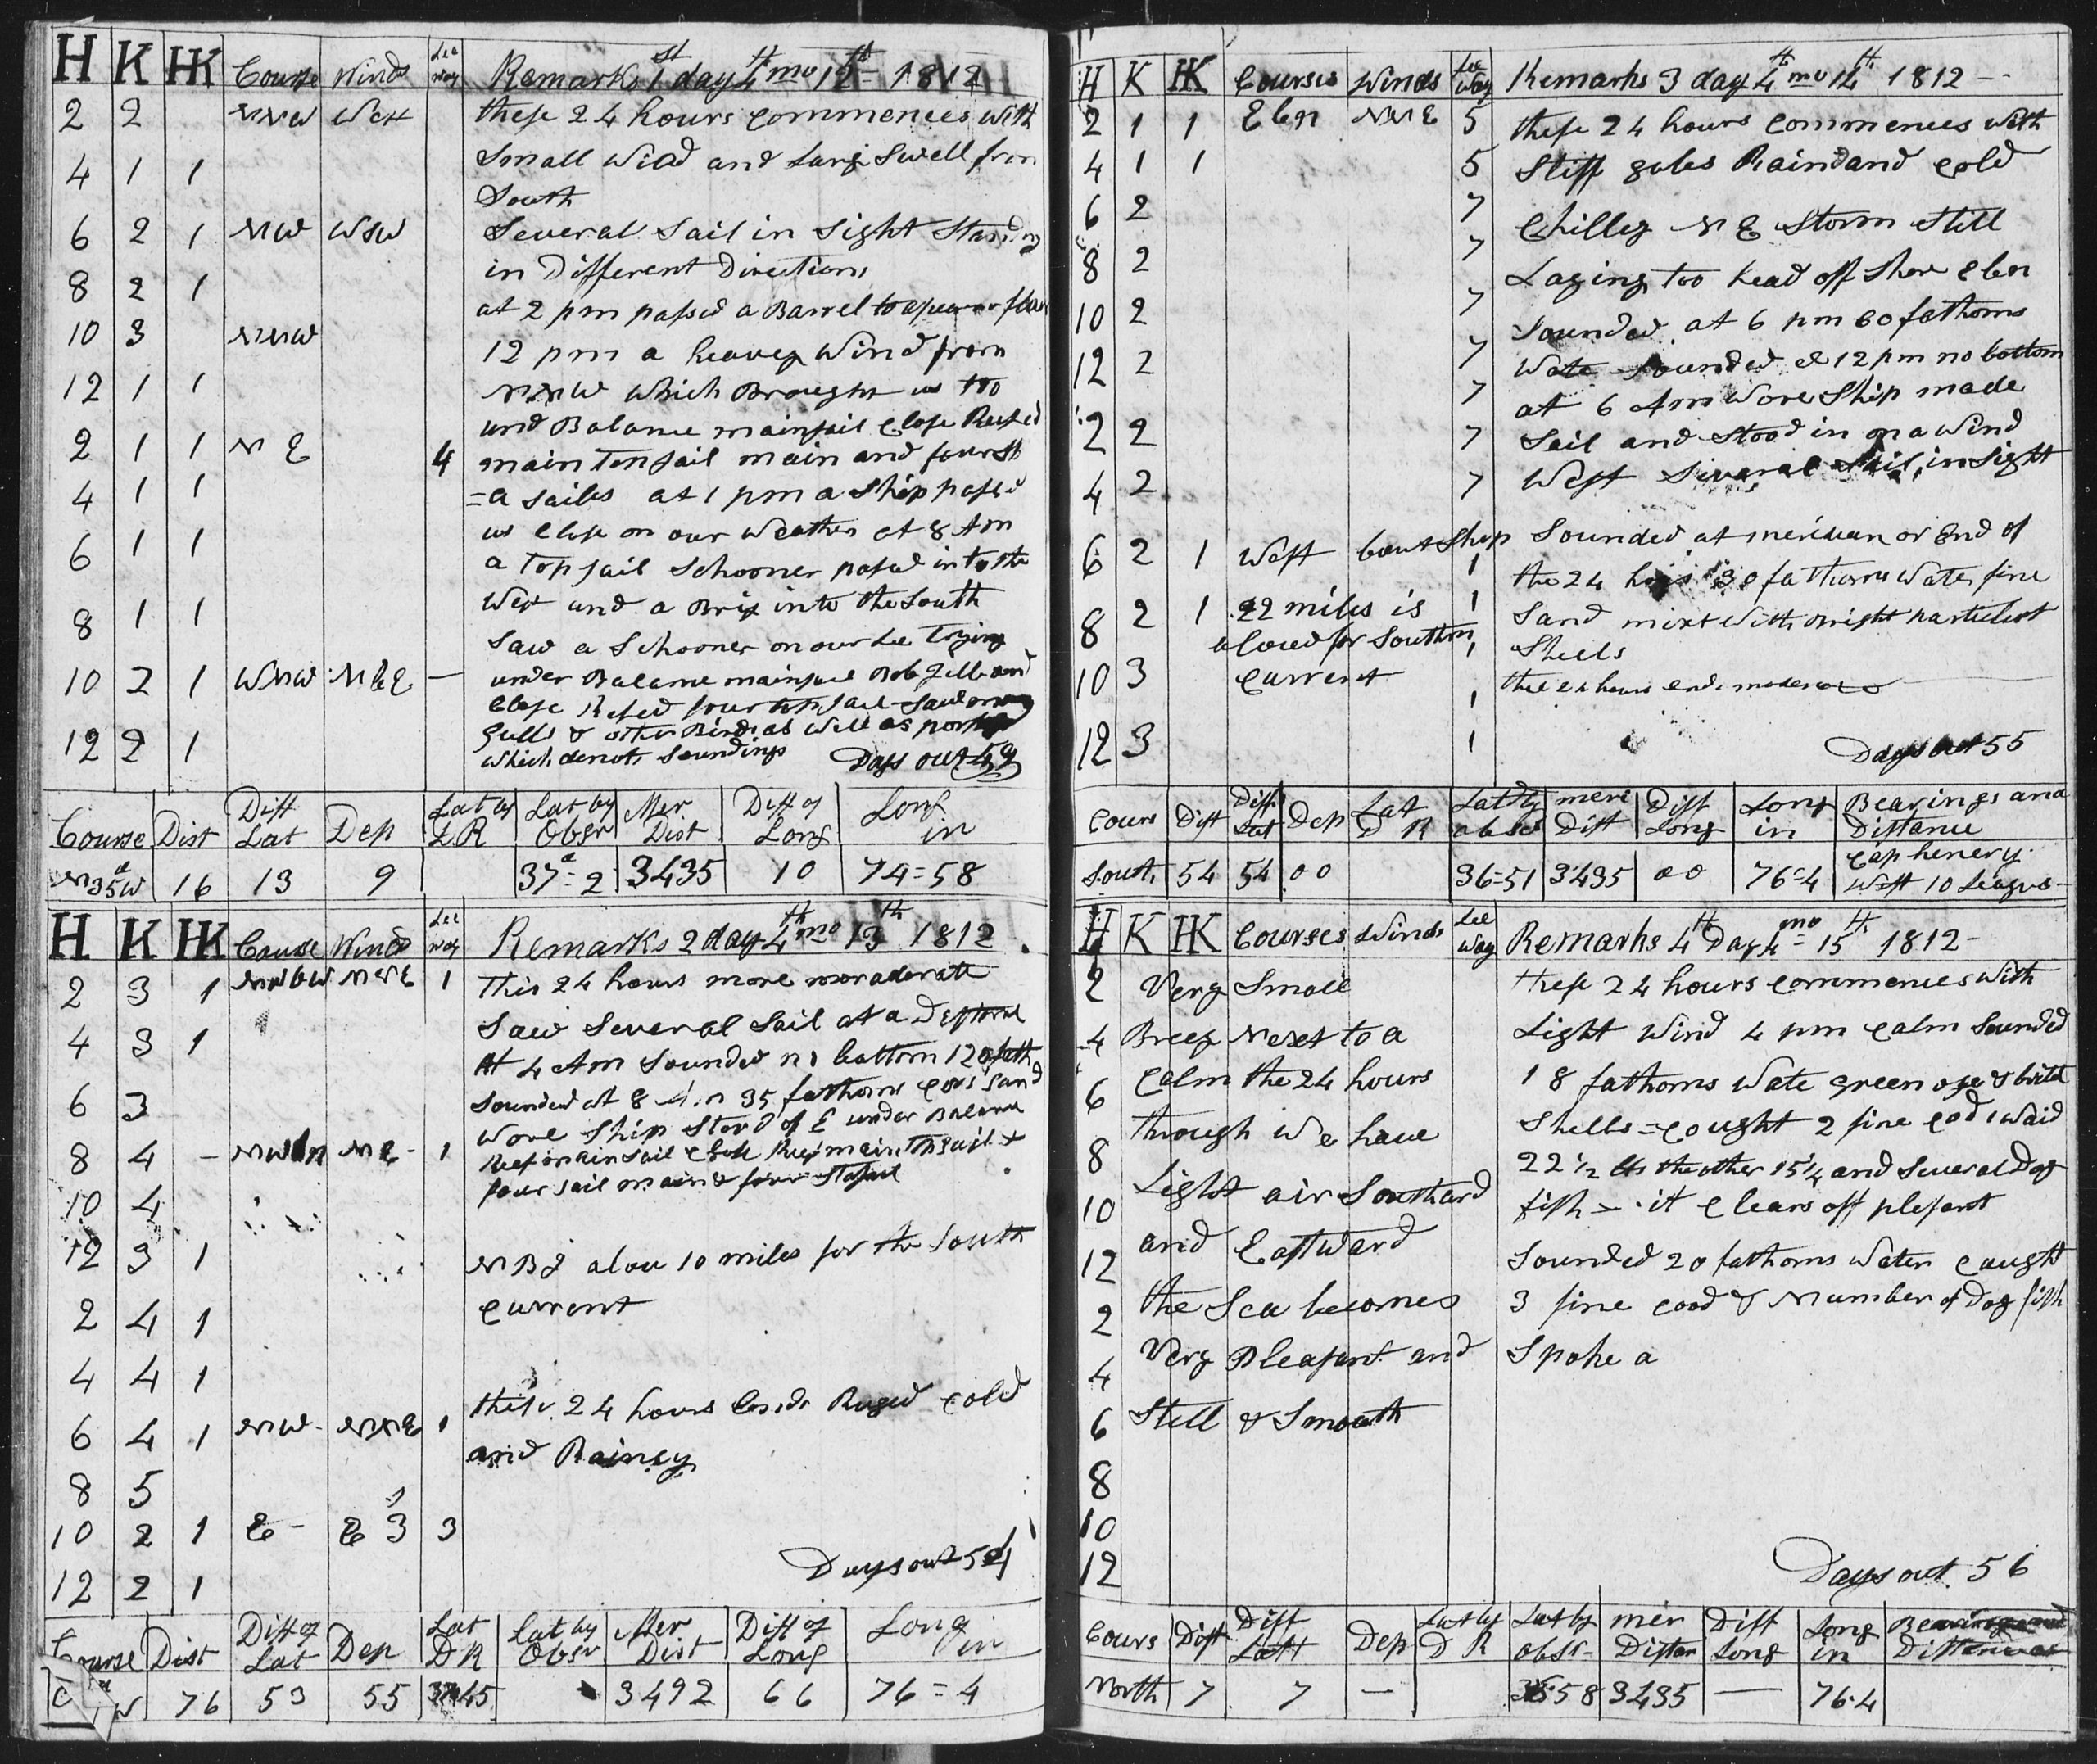 H K HK Course Winds Lee Way Remarks 1st day 4th mo 12th 1812
2 2 NNW West these 24 hours commences with
4 1 1 Small Wind and Larg Swell from
South
6 2 1 NW WSW Several Sail in Sight Standing
in Different Directions
8 2 1 at 2 pm passed a Barrel
10 3 NNW 12 pm a heavey Wind from
12 1 1 NNW Which Brought us too
und Balance mainsail Close Reefed
2 1 1 NE 4 main Topsail main and fourst
4 1 1 =a sailes at 1 pm a Ship passed
us Close on our Weather at 8 Am
6 1 1 a Topsail Schooner passed into the
West and a Brig into the South
8 1 1 Saw a Schooner on our Lee Trying
10 2 1 WNW NbE — under Balance mainsail Bob Jibb and
Close Refed four topsail Saw
12 2 1 Gulls & other Birds as Well as
Which denots Soundings Days out 53
Course Dist Diff Lat Dep Lat by D R Lat by Obsr Mer Dist Diff of Long Long in
N 35 d W 16 13 9 37 d = 2 3435 10 74=58
H K HK Course Wind Lee Way Remarks 2 day 4th mo 13th 1812
2 3 1 NWbW NNE 1 This 24 hours more moraderate
4 3 1 Saw Several Sail at a
At 4 Am Sounded no bottom 120 fath
6 3 Sounded at 8 Am 35 fathoms Cors Sand
Wore Ship Stood of E under Balance
8 4 - NWbN NE - 1 Reef mainsail Close Reef main Topsail &
four Sail main & four Staysail
10 4
12 3 1 NB alow 10 miles for the South
2 4 1 Current
4 4 1 these 24 hours Ends Ruged Cold
6 4 1 NW - NNE 1 and Rainey
8 5
10 2 1 E - 3
12 2 1 Days out 54
Course Dist Diff of Lat Dep Lat D R Lat by Obsr Mer Dist Diff of Long Long in
W 76 53 55 3745 3492 66 76=4
H K HK Courses Winds Lee Way Remarks 3 day 4th mo 14th 1812 --
2 1 1 EbN NNE 5 these 24 hours Commences with
4 1 1 5 Stiff gales Rain and Cold
6 2 7 Chilley N E Storm Still
8 2 7 Laying too head off Shore EbN
10 2 7 Sounded at 6 pm 60 fathoms
12 2 7 Wate Sounded at 12 pm no bottom
7 at 6 Am Wore Ship made
2 2 7 Sail and Stood in on a Wind
4 2 7 West Several Sail in Sight
6 2 1 West bout Ship 1 Sounded at meridian or End of
the 24 30 fathoms Wate fine
8 2 1 22 miles is 1 Sand mixt With Bright
alowed for Southern 1 Shells
10 3 Current 1 these 24 hours ends moderate
12 3 1 Days out 55
Cours Dist Diff Lat Dep Lat D R Lat by obser meri Dist Diff Long Long in Bearings and Distance
South 54 54 00 36=51 3435 00 76=4 Cap henery West 10 Leagus -
H K HK Courses Winds Lee Way Remarks 4th Day 4 mo 15th 1812 -
2 Very Small these 24 hours Commences With
4 Breez Next to a Light Wind 4 pm Calm Sounded
6 Calm the 24 hours 18 fathoms Wate green
8 through We have Shells = Cought 2 fine Cod 1 Waid
22 1/2 the other 15 1/4 and Several Dog
10 Light air Southard fish - it Clears off plesant
12 and Eastward Sounded 20 fathoms Water Caught
2 the Sea becomes 3 fine Cood & Number of Dog fish
4 Very Pleasant and Spoke a
6 Still & Smouth
8
10
12 Days out 56
Cours Dist Diff Latt Dep Lat by D R Lat by obsr - mer Distan Diff Long Long in Bearing and Distances
North 7 7 — 3658 3435 — 76.4